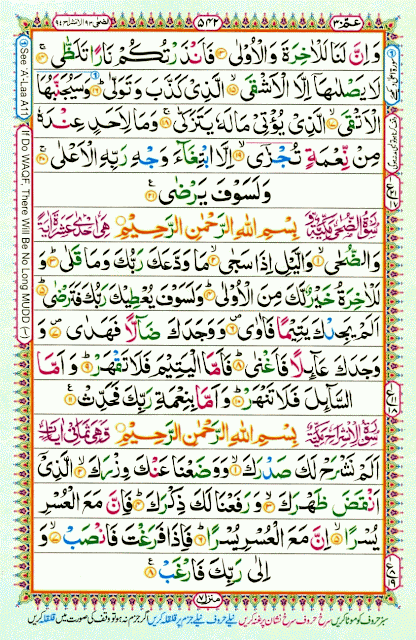 عمّ ٣٠
٥٤٢
الضحٰى ٩٣ الانشراح ٩٤
وَاِنَّ لَنَا لَلْاٰخِرَةَ وَالْاُوْلٰى ۝١٣ فَاَنْذَرْتُكُمْ نَارًا تَلَظّٰى ۝١٤
لَا يَصْلٰىهَاۤ اِلَّا الْاَشْقَى ۝١٥ الَّذِىْ كَذَّبَ وَتَوَلّٰى ۝١٦ وَسَيُجَنَّبُهَا
الْاَتْقَى ۝١٧ الَّذِىْ يُؤْتِىْ مَالَهٗ يَتَزَكّٰى ۝١٨ وَمَا لِاَحَدٍ عِنْدَهٗ
مِنْ نِّعْمَةٍ تُجْزٰٓى ۝١٩ اِلَّا ابْتِغَآءَ وَجْهِ رَبِّهِ الْاَعْلٰى ۝٢٠
وَلَسَوْفَ يَرْضٰى ۝٢١
سُوْرَةُ الضُّحٰى مَكِّيَّةٌ بِسْمِ اللّٰهِ الرَّحْمٰنِ الرَّحِيْمِ هِىَ اِحْدٰى عَشْرَةَ اٰيَةً
وَالضُّحٰى ۝١ وَالَّيْلِ اِذَا سَجٰى ۝٢ مَا وَدَّعَكَ رَبُّكَ وَمَا قَلٰى ۝٣ وَ
لَلْاٰخِرَةُ خَيْرٌ لَّكَ مِنَ الْاُوْلٰى ۝٤ وَلَسَوْفَ يُعْطِيْكَ رَبُّكَ فَتَرْضٰى ۝٥
اَلَمْ يَجِدْكَ يَتِيْمًا فَاٰوٰى ۝٦ وَوَجَدَكَ ضَآلًّا فَهَدٰى ۝٧ وَ
وَجَدَكَ عَآئِلًا فَاَغْنٰى ۝٨ فَاَمَّا الْيَتِيْمَ فَلَا تَقْهَرْ ۝٩ وَاَمَّا
السَّآئِلَ فَلَا تَنْهَرْ ۝١٠ وَاَمَّا بِنِعْمَةِ رَبِّكَ فَحَدِّثْ ۝١١
سُوْرَةُ الْاِنْشِرَاحِ مَكِّيَّةٌ بِسْمِ اللّٰهِ الرَّحْمٰنِ الرَّحِيْمِ وَهِىَ ثَمَانِىْ اٰيَاتٍ
اَلَمْ نَشْرَحْ لَكَ صَدْرَكَ ۝١ وَوَضَعْنَا عَنْكَ وِزْرَكَ ۝٢ الَّذِىْۤ
اَنْقَضَ ظَهْرَكَ ۝٣ وَرَفَعْنَا لَكَ ذِكْرَكَ ۝٤ فَاِنَّ مَعَ الْعُسْرِ
يُسْرًا ۝٥ اِنَّ مَعَ الْعُسْرِ يُسْرًا ۝٦ فَاِذَا فَرَغْتَ فَانْصَبْ ۝٧ وَ
اِلٰى رَبِّكَ فَارْغَبْ ۝٨
منزل ٧
سبز حروف کو موٹا کریں سرخ حروف سرخ نشان پر غنہ کریں نیلے حروف نیلے جزم پر قلقلہ کریں اگر جزم نہ ہو تو وقف کی صورت میں قلقلہ کریں
See A-Laa A11
If Do WAQF, There Will Be No Long MUDD